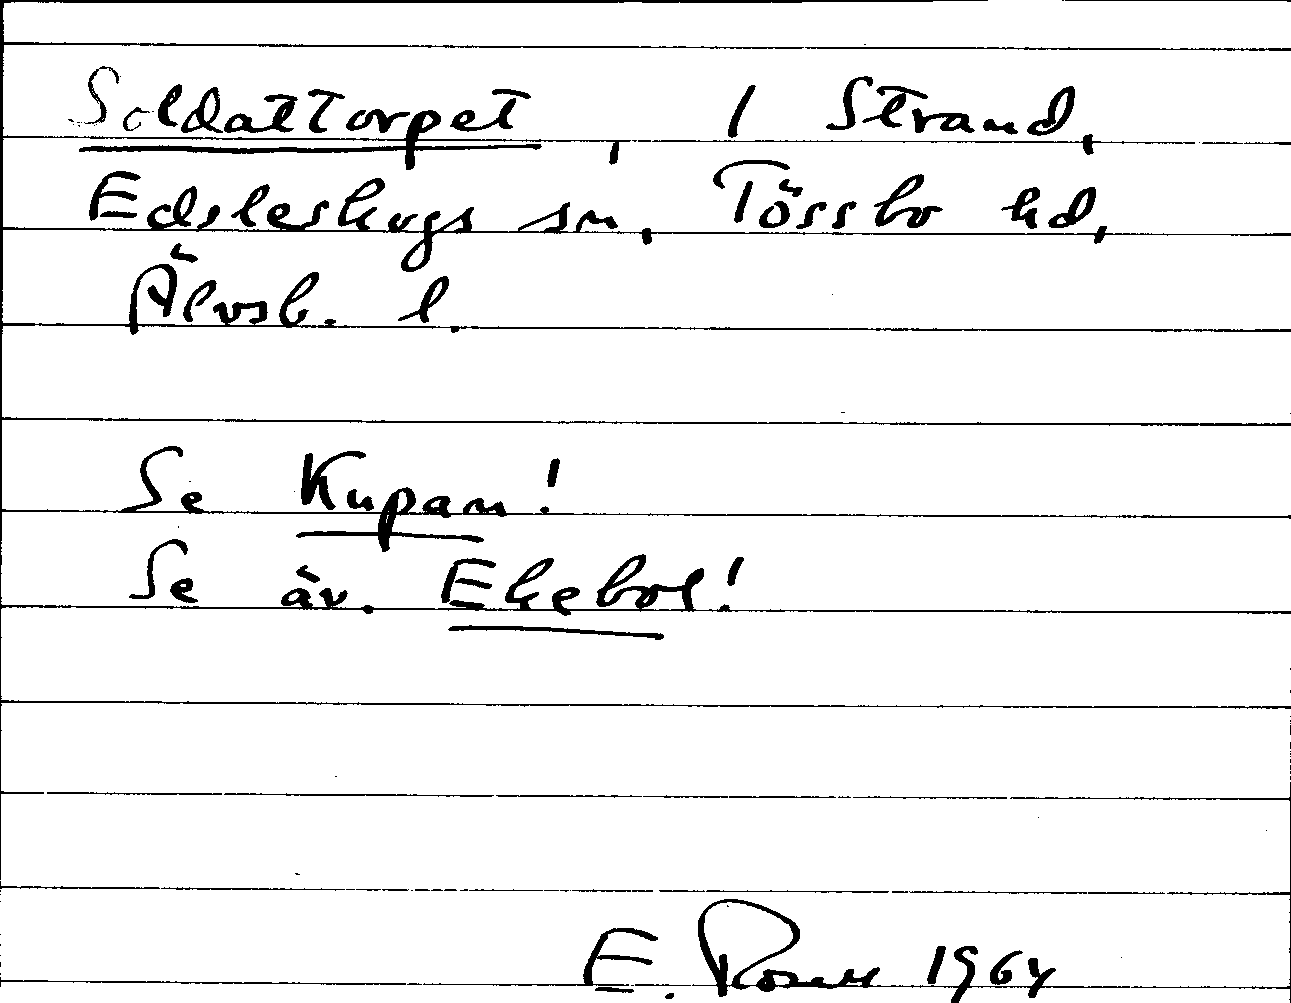 Soldattorpet, 1 Strand,
Edsleskogs sn, Tössbo hd,
Älvsb. l.
Se Kupan!
Se äv. Ekebol!
E. Rosell 1964